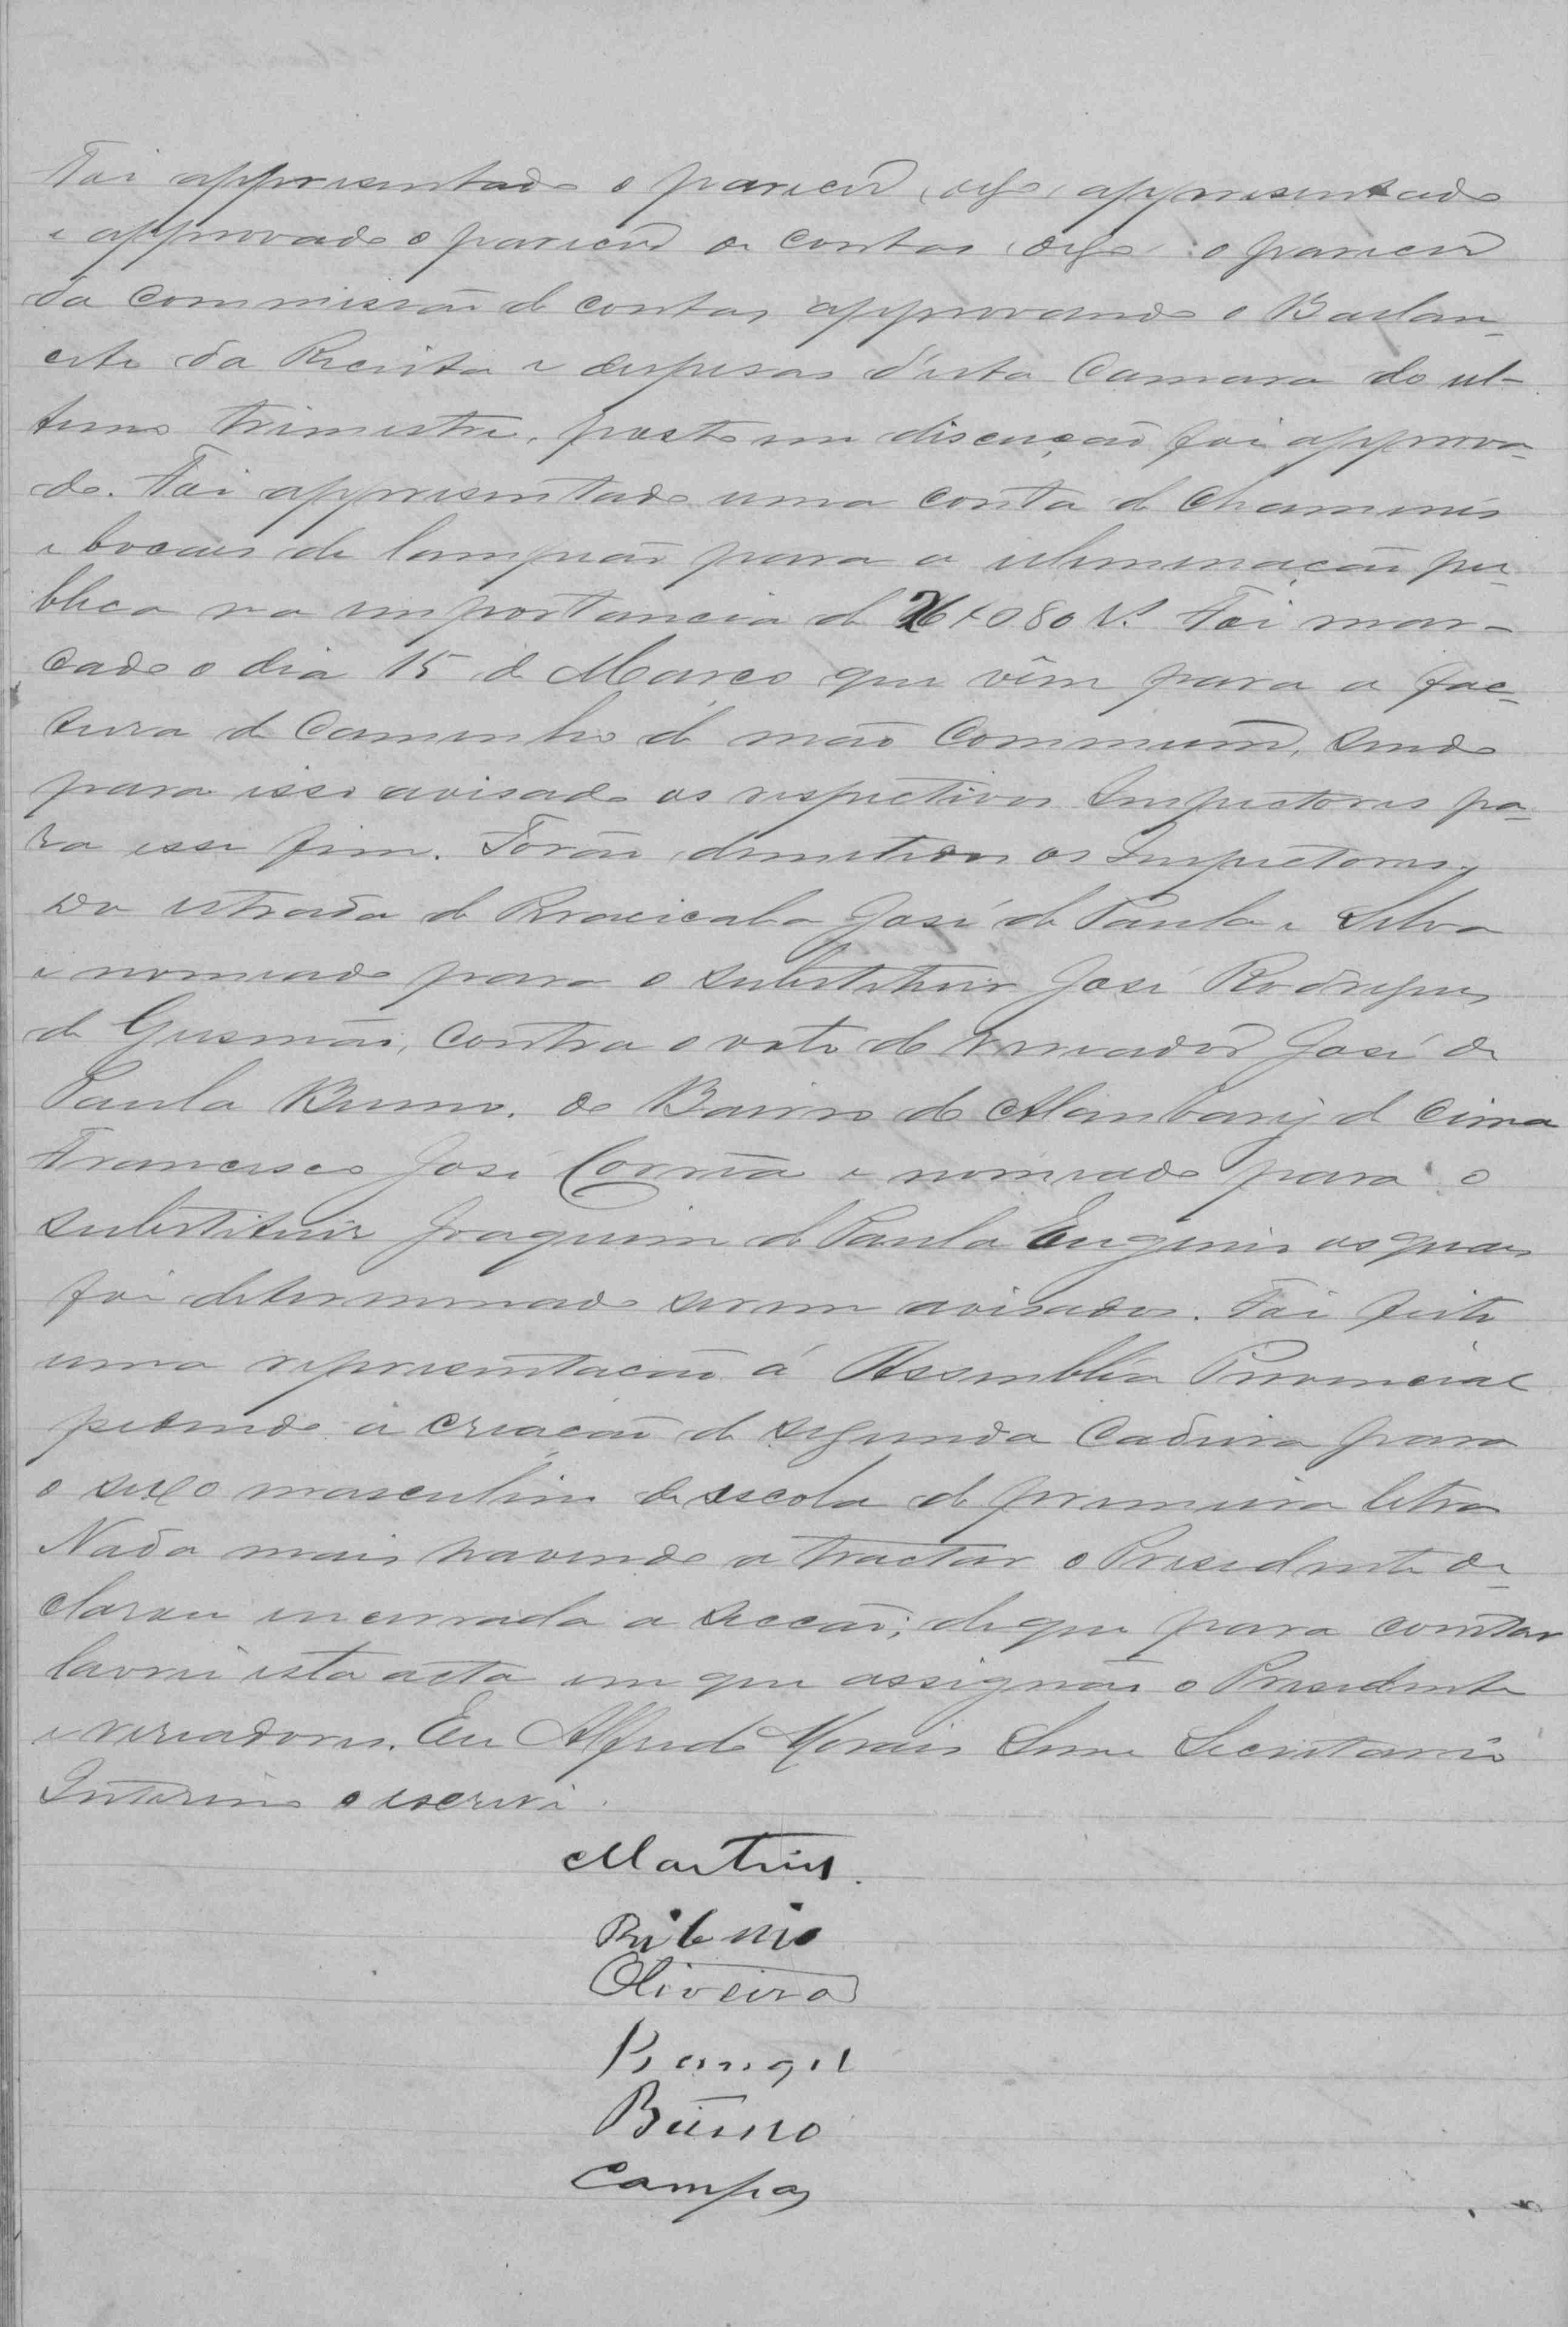 Foi appresentado o parecer, digo, appresentado
e approvado o parecer de contas, digo o parecer
da Commissão de contas, approvando o Baslan-
cete da Receita e despesas d'esta Camara do ul-
timo trimestre, posto em discução foi approva-
do. Foi appresentado uma conta de Chaminés
e bocaes de lampeão para a illuminação pu-
blica na importancia de 26$080 rs. Foi mar-
cado o dia 15 de Março que vêm para a fac-
tura de Caminho de mão Commum, sendo
para isso avisado os respectivos Inspectores pa-
ra esse fim. Forão demittidos os Inspectores,
da estrada de Piracicaba José de Paula e Silva
e nomeado para o substituir José Rodrigues
de Gusmão, contra o voto do Vereador José de
Paula Bueno. do Bairro do Alambary de Cima
Francisco José Corrêa e nomeado para o
substituir Joaquim de Paula Eugenio os quaes
foi determinado serem avisados. Foi feito
uma representação á Assembléa Provincial
pedindo a criação de segunda Cadeira para
o sexo masculino de escola de primeira letra
Nada mais havendo a tractar o Presidente de-
clarou encerrada a secção; de que para constar
lavrei esta acta em que assignão o Presidente
e vereadores. Eu Alfredo Morais Leme Secretario
Interino o escrevi.
Martins.
Ribeiro
Oliveira
Rangel
Bueno
Campos